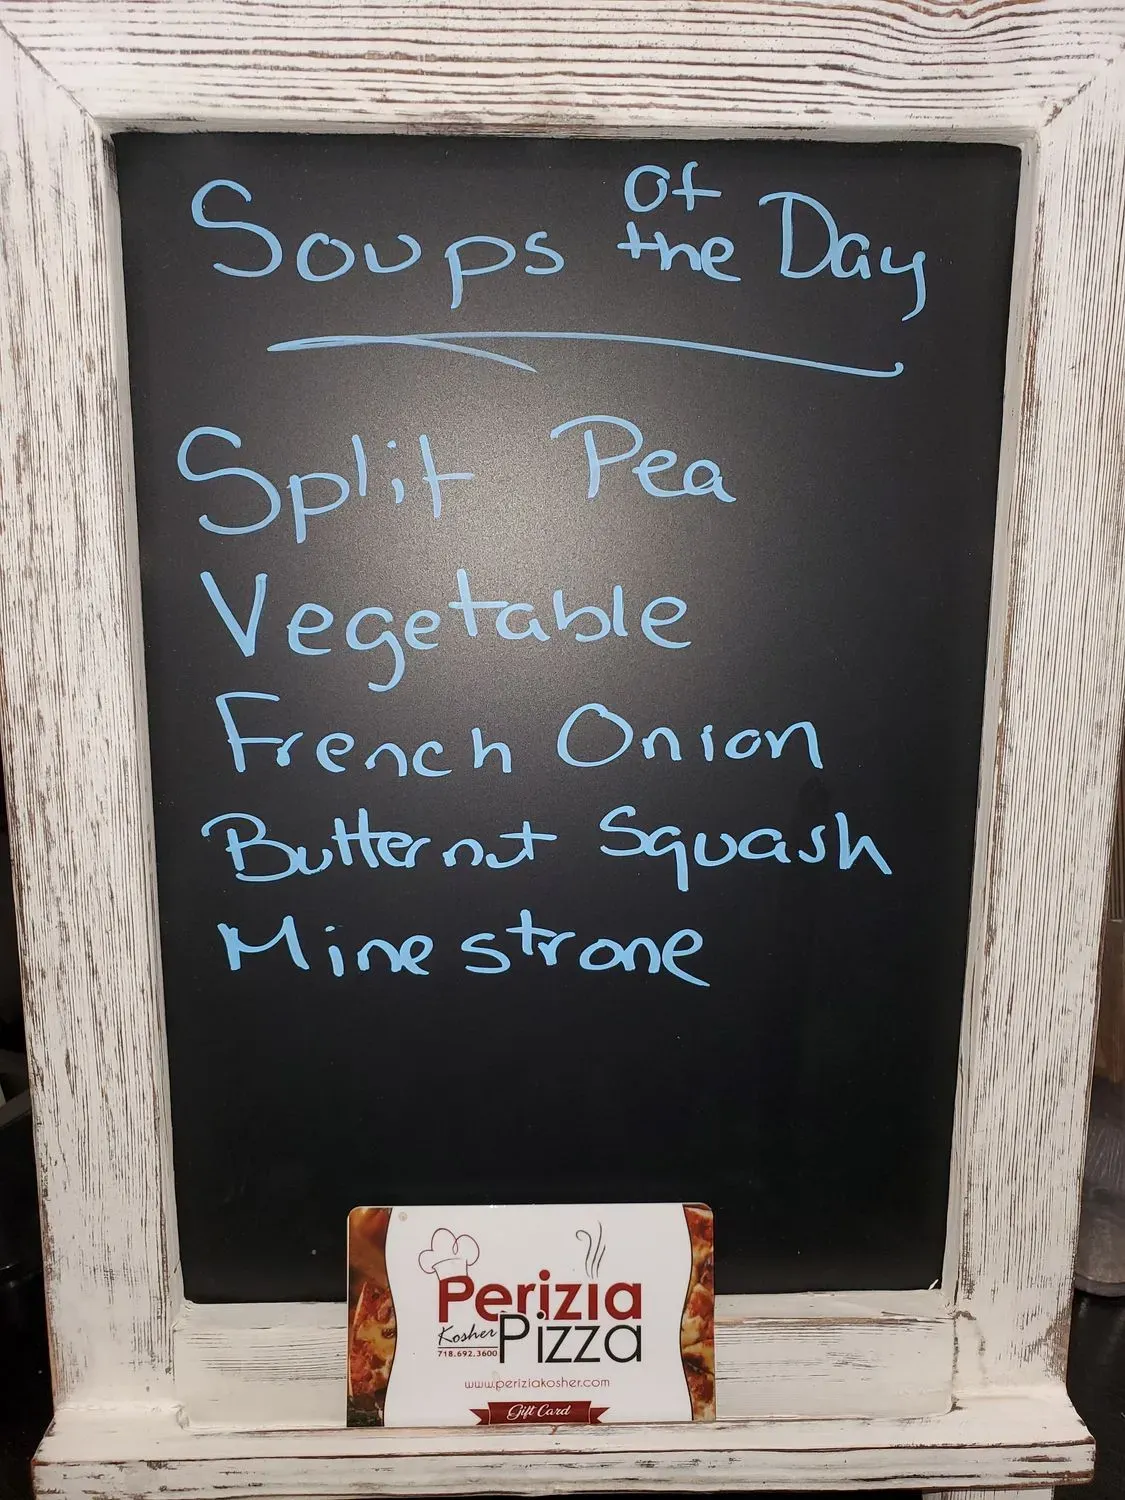 Soups of the Day
Split Pea
Vegetable
French Onion
Butternut Squash
Minestrone
Perizia
Kosher Pizza
718.692.3600
www.periziakosher.com
Gift Card